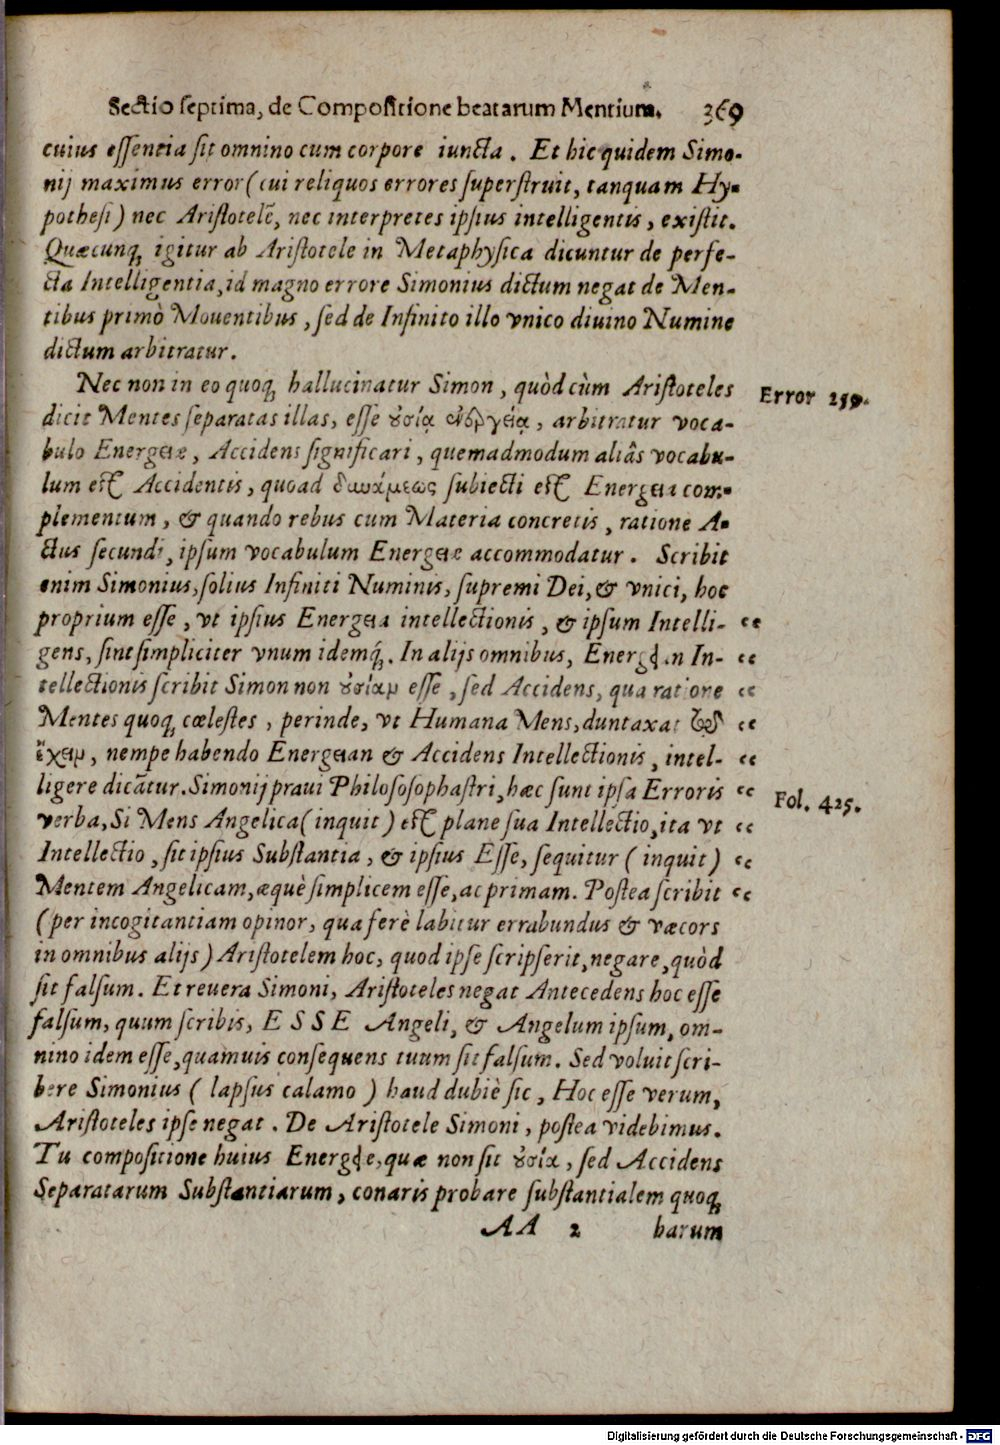 Sectio septima, de Compositione beatarum Mentium. 369
cuius essentia sit omnino cum corpore iuncta. Et hic quidem Simo-
nij maximus error (cui reliquos errores superstruit, tanquam Hy-
pothesi) nec Aristotelẽ, nec interpretes ipsius intelligentis, existit.
Quæcunq; igitur ab Aristotele in Metaphysica dicuntur de perfe-
cta Intelligentia, id magno errore Simonius dictum negat de Men-
tibus primò Mouentibus, sed de Infinito illo vnico diuino Numine
dictum arbitratur.
Nec non in eo quoq; hallucinatur Simon, quòd cùm Aristoteles
Error 259.
dicit Mentes separatas illas, esse ȣσίᾳ ἐνεργείᾳ, arbitratur voca-
bulo Energeiæ, Accidens significari, quemadmodum aliâs vocabu-
lum est Accidentis, quoad δυνάμεως subiecti est Energeia com-
plementum, & quando rebus cum Materia concretis, ratione A-
ctus secundi, ipsum vocabulum Energeiæ accommodatur. Scribit
enim Simonius, solius Infiniti Numinis, supremi Dei, & vnici, hoc
proprium esse, vt ipsius Energeia intellectionis, & ipsum Intelli- “
gens, sint simpliciter vnum idemq́;. In alijs omnibus, Energeian In- “
tellectionis scribit Simon non ȣσίαν esse, sed Accidens, qua ratione “
Mentes quoq; cœlestes, perinde, vt Humana Mens, duntaxat τῷ “
ἔχειν, nempe habendo Energeian & Accidens Intellectionis, intel- “
ligere dicãtur. Simonij praui Philososophastri, hæc sunt ipsa Erroris “
Fol. 425.
verba, Si Mens Angelica (inquit) est plane sua Intellectio, ita vt “
Intellectio, sit ipsius Substantia, & ipsius Esse, sequitur (inquit) “
Mentem Angelicam, æquè simplicem esse, ac primam. Postea scribit “
(per incogitantiam opinor, qua ferè labitur errabundus & væcors
in omnibus alijs) Aristotelem hoc, quod ipse scripserit, negare, quòd
sit falsum. Et reuera Simoni, Aristoteles negat Antecedens hoc esse
falsum, quum scribis, ESSE Angeli, & Angelum ipsum, om-
nino idem esse, quamuis consequens tuum sit falsum. Sed voluit scri-
bere Simonius (lapsus calamo) haud dubiè sic, Hoc esse verum,
Aristoteles ipse negat. De Aristotele Simoni, postea videbimus.
Tu compositione huius Energeiæ, quæ non sit ȣσία, sed Accidens
Separatarum Substantiarum, conaris probare substantialem quoq;
AA 2 harum
Digitalisierung gefördert durch die Deutsche Forschungsgemeinschaft - DFG